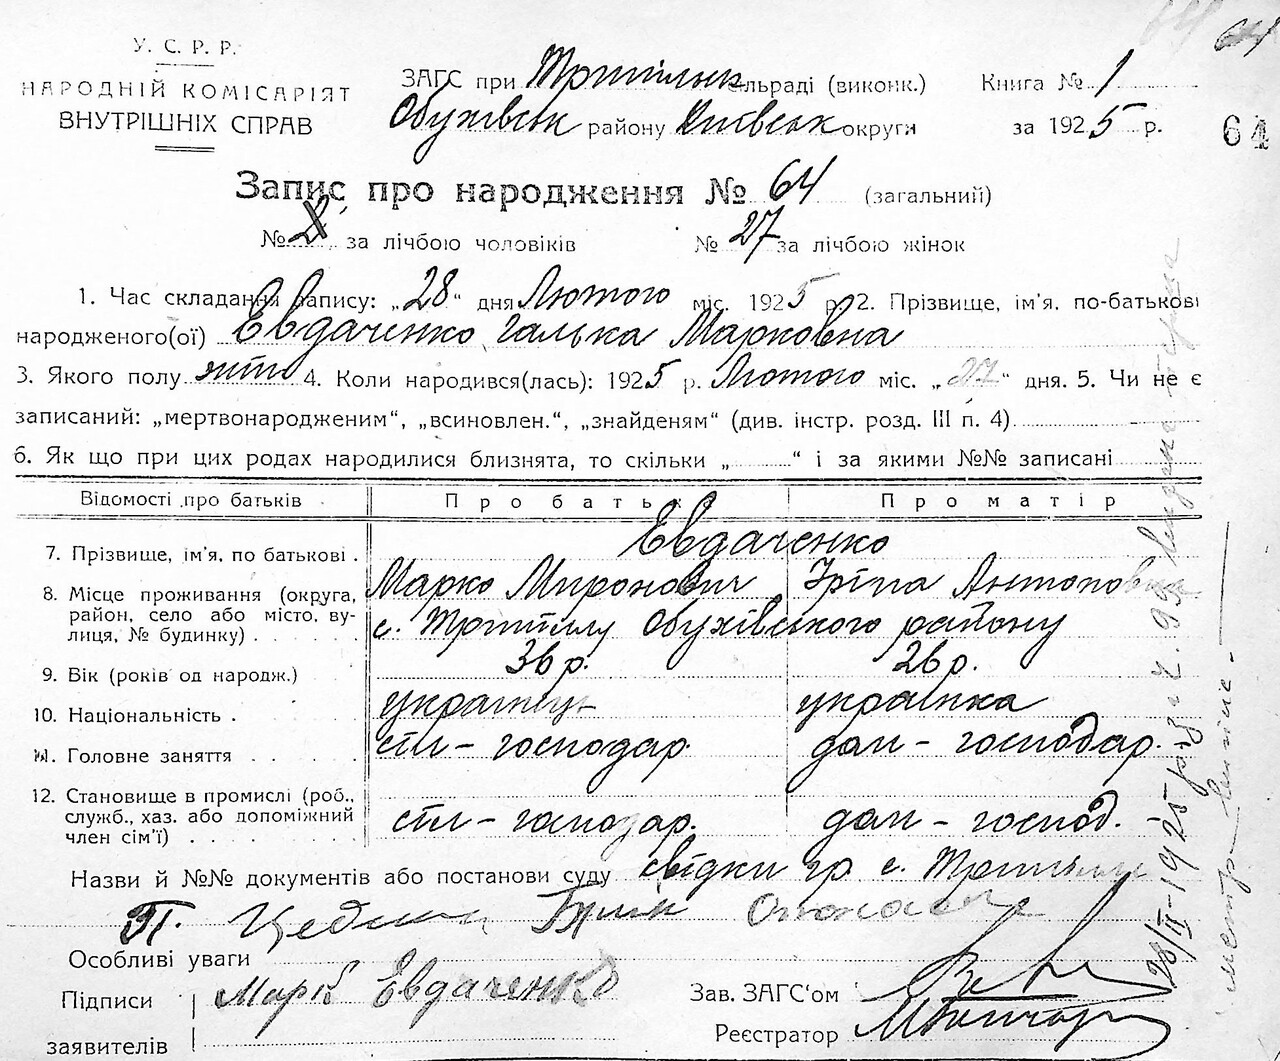 64
У. С. Р. Р.
НАРОДНІЙ КОМІСАРІЯТ
ВНУТРІШНІХ СПРАВ
ЗАГС при Трипільск сільраді (виконк.)
Обухівськ району Київськ округи
Книга № 1
за 1925 р.
64
Запис про народження № 64 (загальний)
№ за лічбою чоловіків № 27 за лічбою жінок
1. Час складання запису: „28“ дня Лютого міс. 1925 р. 2. Прізвище, ім'я, по-батькові
народженого(ої) Евдаченко Галька Марковна
3. Якого полу жін 4. Коли народився(лась): 1925 р. Лютого міс. „27“ дня. 5. Чи не є
записаний: „мертвонародженим“, „всиновлен.“, „знайденям“ (див. інстр. розд. III п. 4)
6. Як що при цих родах народилися близнята, то скільки „ “ і за якими №№ записані
Відомості про батьків Про батька Про матір
7. Прізвище, ім'я, по батькові . Евдаченко
Марко Миронович Іріна Антоновна
8. Місце проживання (округа, район, село або місто, ву-
лиця, № будинку) с. Трипіллу Обухівського району
9. Вік (років од народж.) 36 р. 26 р.
10. Національність . українець українка
11. Головне заняття сіл - господар дом - господар.
12. Становище в промислі (роб., служб., хаз. або допоміжний
член сім'ї) сіл - господар. дом - господ.
Назви й №№ документів або постанови суду свідки гр. с. Трипілля
Особливі уваги
Підписи заявителів Марко Евдаченко
Зав. ЗАГС'ом
Реєстратор
28/II-1925 р.